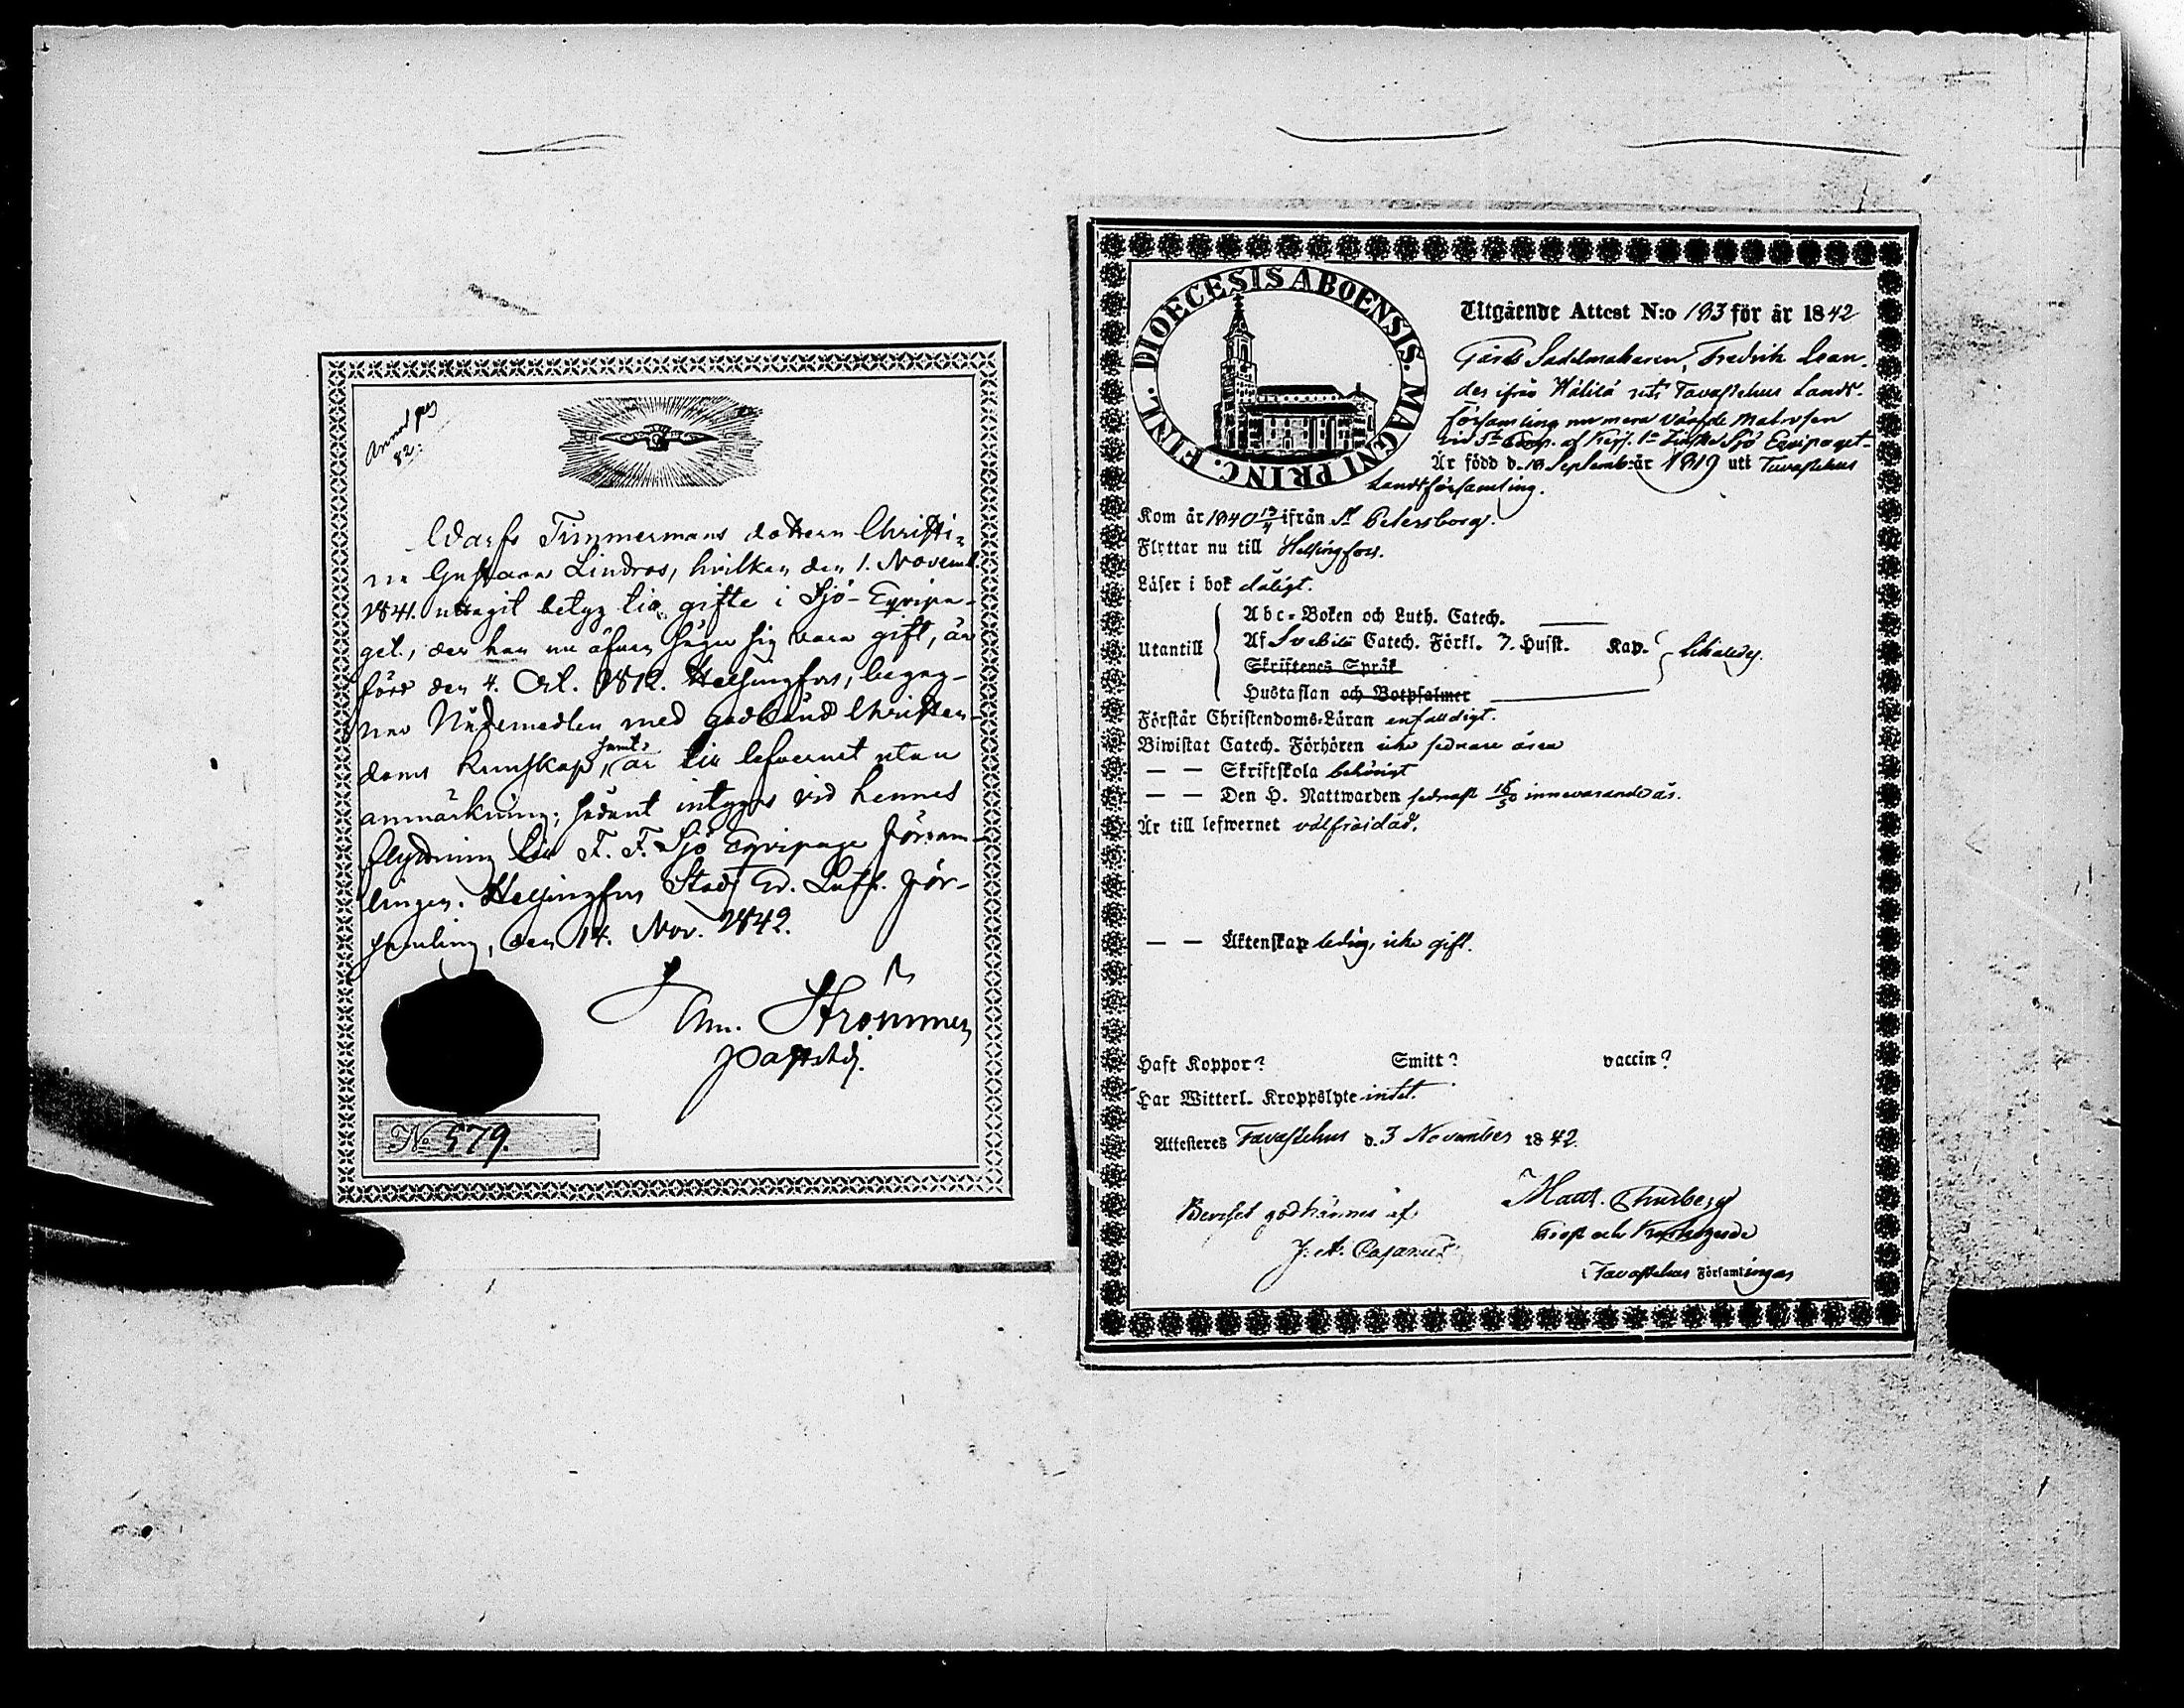 Annot pag
82:
Warfs Timmermans dottern Christi-
na Gustava Lindros, hvilken den 1. Novemb.
1841. uttagit betyg till gifte i Sjö-Eqvipa-
get, der hon nu äfven säger sig vara gift, är
född den 4. Oct. 1812. Helsingfors, begag-
nar Nådemedlen med godkänd Christen-
doms kunskap, samt är till lefvernet utan
anmärkning; sådant intygas vid hennes
flyttning till F. F. Sjö Eqvipage Försam-
lingen. Helsingfors Stads Ev. Luth. För-
samling, den 14. Nov. 1842.
Strömmer
No 579.
DIOECESIS ABOENSIS. MAGNI PRINC. FINL.
Utgående Attest N:o 193 för år 1842
Gårds Sadelmakaren, Fredrik Lean-
der ifrån Hätilä uti Tavastehus Lands-
församling nu mera värfde Matrosen
vid 5te Comp. af Kejs. 1a Finska Sjö Equipaget-
Är född d. 18 Septemb: år 1819 uti Tavastehus
Landsförsamling.
Kom år 1840 13/4 ifrån St Petersborg.
Flyttar nu till Helsingfors.
Läser i bok dåligt.
Abc-Boken och Luth. Catech.
Utantill Af Svebilii Catech. Förkl. 7. Husst. Kap.
Skriftenes Språk
Hustaflan och Botpsalmer
Förstår Christendoms-Läran enfaldigt.
Biwistat Catech. Förhören icke sednare åren
— — Skriftskola behörigt
— — Den H. Nattwarden sednast innevarande år.
Är till lefwernet välfräjdad.
— — Äktenskap ledig, icke gift.
Haft Koppor? Smitt? vaccin?
Har Witterl. Kroppslyte intet.
Attesteres Tavastehus d. 3 November 1842.
Beviset godkännes af
Matt. Thurberg
J. A. Cajanus
Prost och Kyrkoherde
i Tavastehus Församlingar